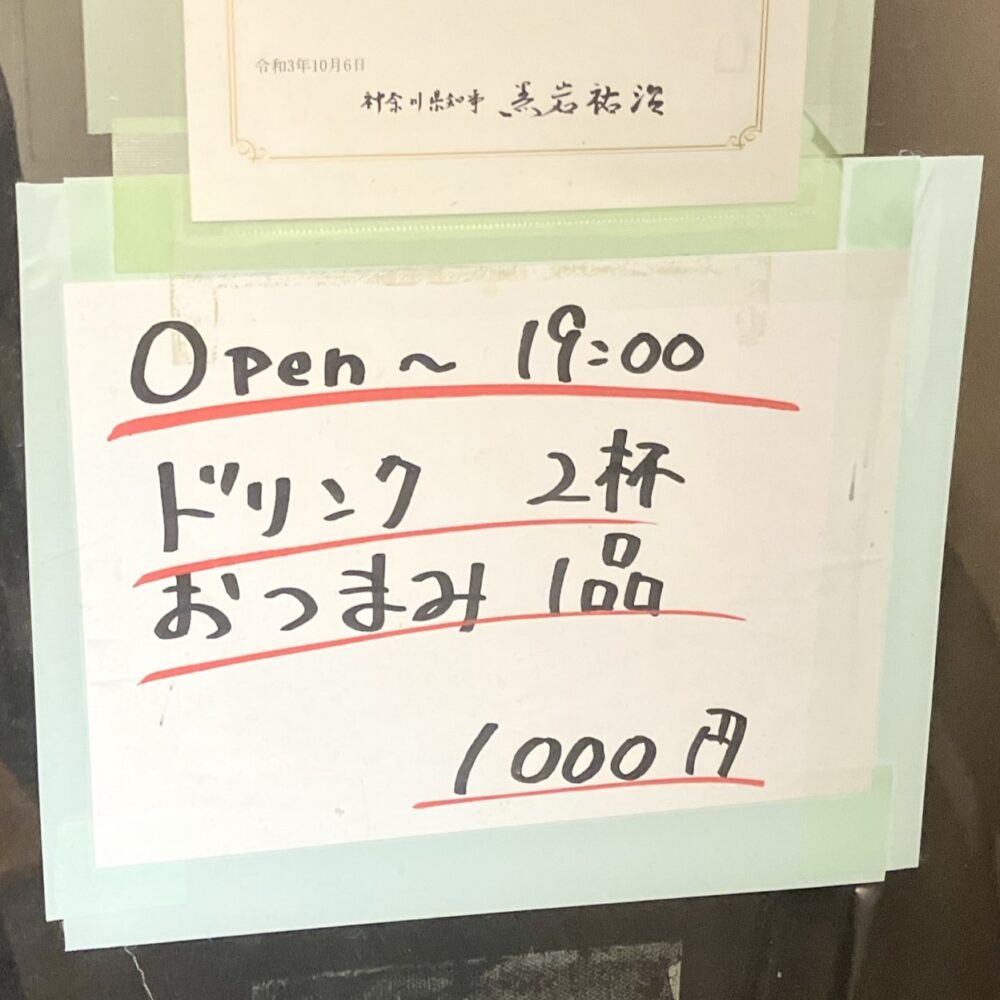 令和3年10月6日
神奈川県知事 黒岩祐治
Open～ 19:00
ドリンク 2杯
おつまみ 1品
1000円